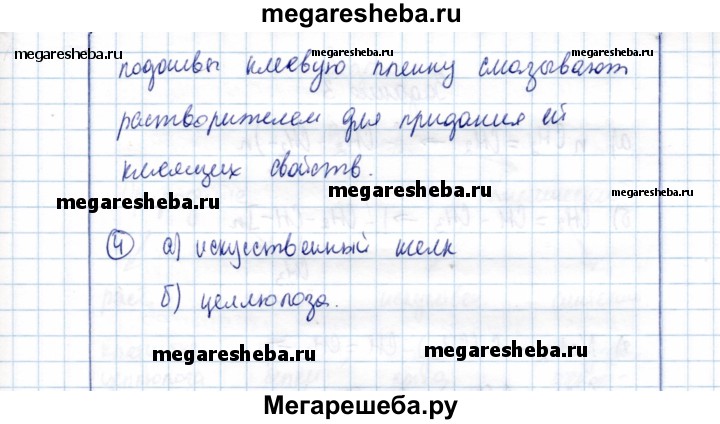 megaresheba.ru
megaresheba.ru megaresheba.ru megaresheba.ru
подошвы клеевую пленку смазывают
растворителем для придания ей
клеящих свойств.
megaresheba.ru megaresheba.ru
4 а) искусственный шелк
б) целлюлоза.
megaresheba.ru megaresheba.ru
Мегарешеба.ру